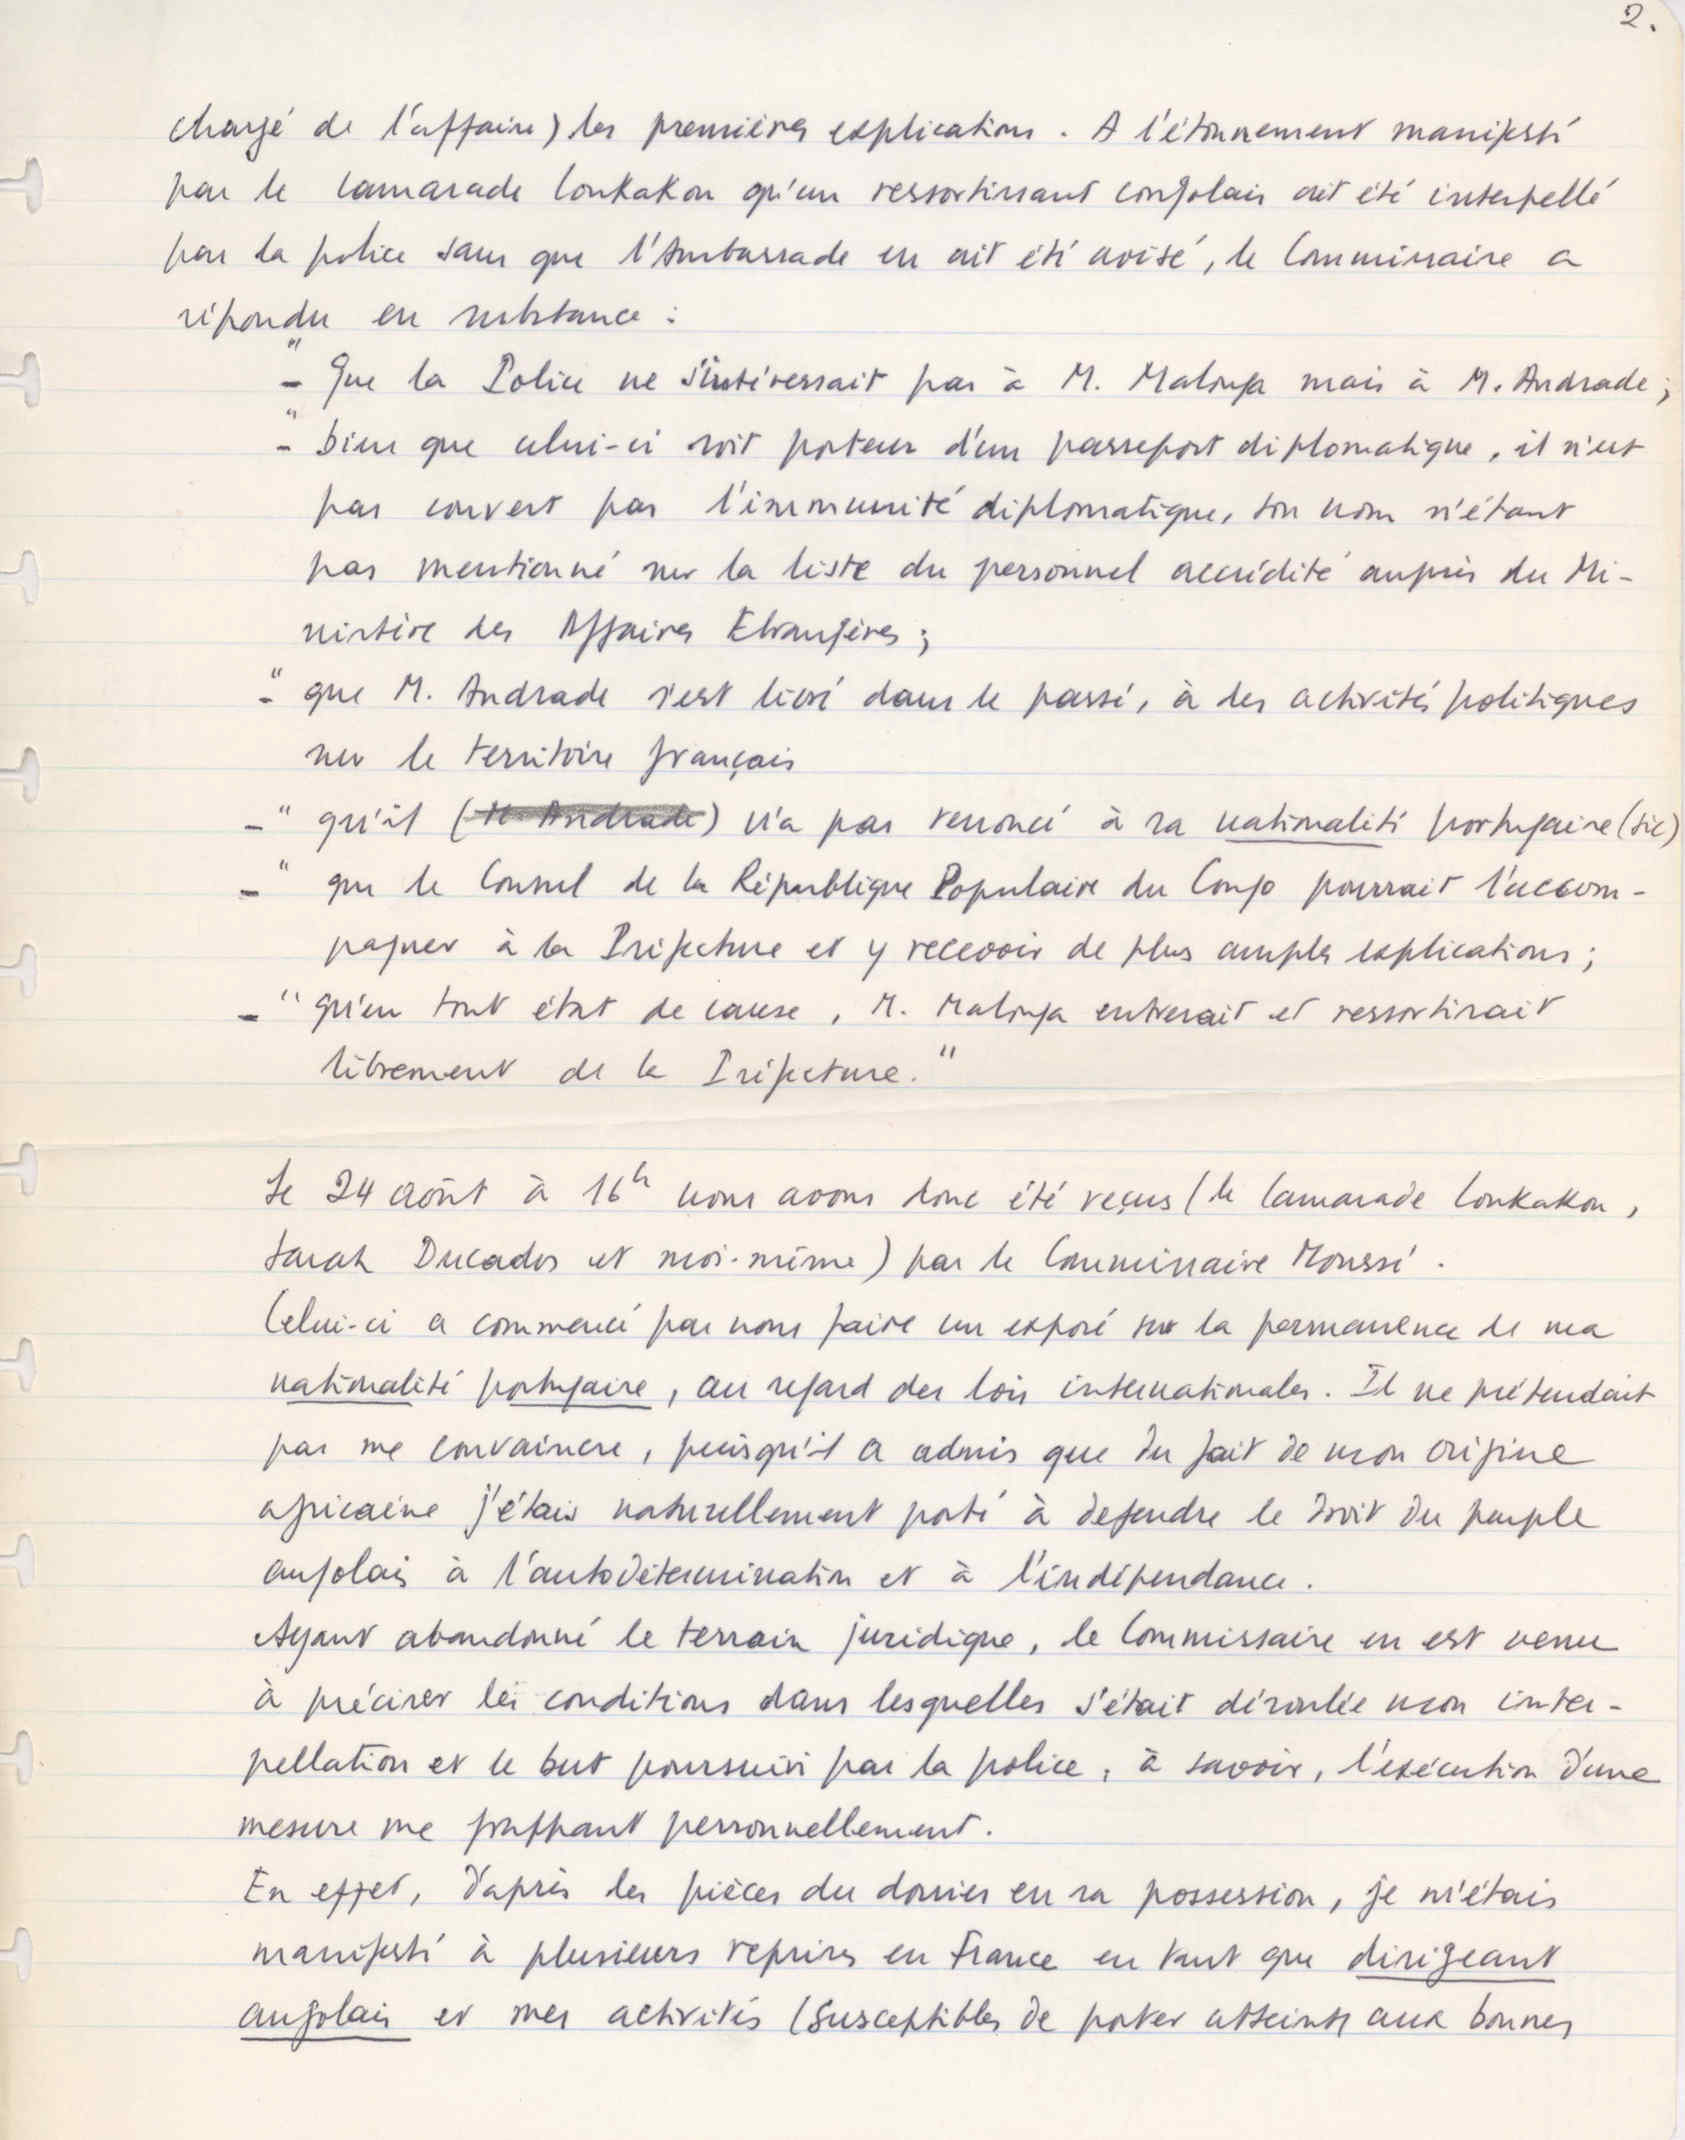 2.
chargé de l'affaire) les premières explications. A l'étonnement manifesté
par le camarade Loukakou qu'un ressortissant congolais ait été interpellé
par la police sans que l'Ambassade en ait été avisé, le Commissaire a
répondu en substance :
"- Que la Police ne s'intéressait pas à M. Malonga mais à M. Andrade ;
"- bien que celui-ci soit porteur d'un passeport diplomatique, il n'est
pas couvert par l'immunité diplomatique, son nom n'étant
pas mentionné sur la liste du personnel accrédité auprès du Mi-
nistère des Affaires Etrangères ;
"- que M. Andrade s'est livré dans le passé, à des activités politiques
sur le territoire français
-" qu'il (M. Andrade) n'a pas renoncé à sa nationalité portugaise (sic)
-" que le Consul de la République Populaire du Congo pourrait l'accom-
pagner à la Préfecture et y recevoir de plus amples explications ;
-" qu'en tout état de cause, M. Malonga entrerait et ressortirait
librement de la Préfecture."
Le 24 août à 16h nous avons donc été reçus (le Camarade Loukakou,
Sarah Ducados et moi-même) par le Commissaire Moussé.
Celui-ci a commencé par nous faire un exposé sur la permanence de ma
nationalité portugaise, au regard des lois internationales. Il ne prétendait
pas me convaincre, puisqu'il a admis que du fait de mon origine
africaine j'étais naturellement porté à defendre le droit du peuple
angolais à l'autodétermination et à l'indépendance.
Ayant abandonné le terrain juridique, le Commissaire en est venu
à préciser les conditions dans lesquelles s'était déroulée mon inter-
pellation et le but poursuivi par la police, à savoir, l'exécution d'une
mesure me frappant personnellement.
En effet, d'après les pièces du dossier en sa possession, je m'étais
manifesté à plusieurs reprises en France en tant que dirigeant
angolais et mes activités (susceptibles de porter atteinte aux bonnes